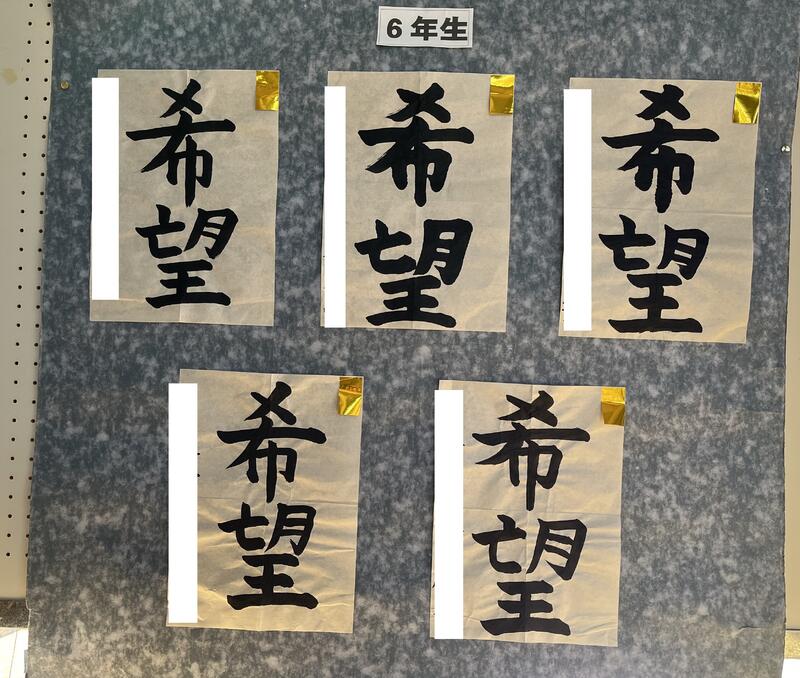 6年生
希望
希望
希望
希望
希望